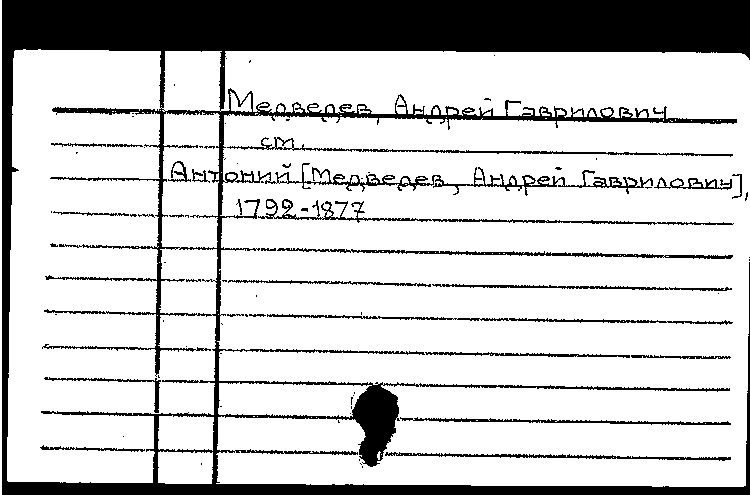 Медведев, Андрей Гаврилович
см.
Антоний [Медведев, Андрей Гаврилович],
1792-1877